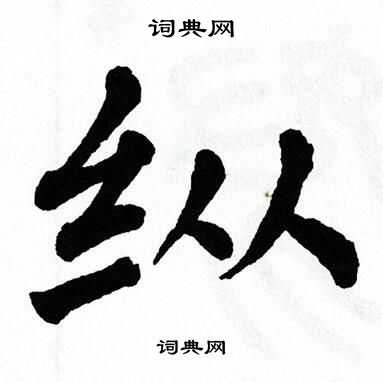 词典网
纵
词典网